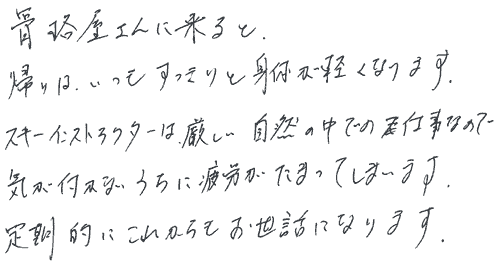 骨格屋さんに来ると、
帰りは、いつもすっきりと身体が軽くなります。
スキーインストラクターは、厳しい自然の中でのお仕事なので
気が付かないうちに疲労がたまってしまいます。
定期的にこれからもお世話になります。